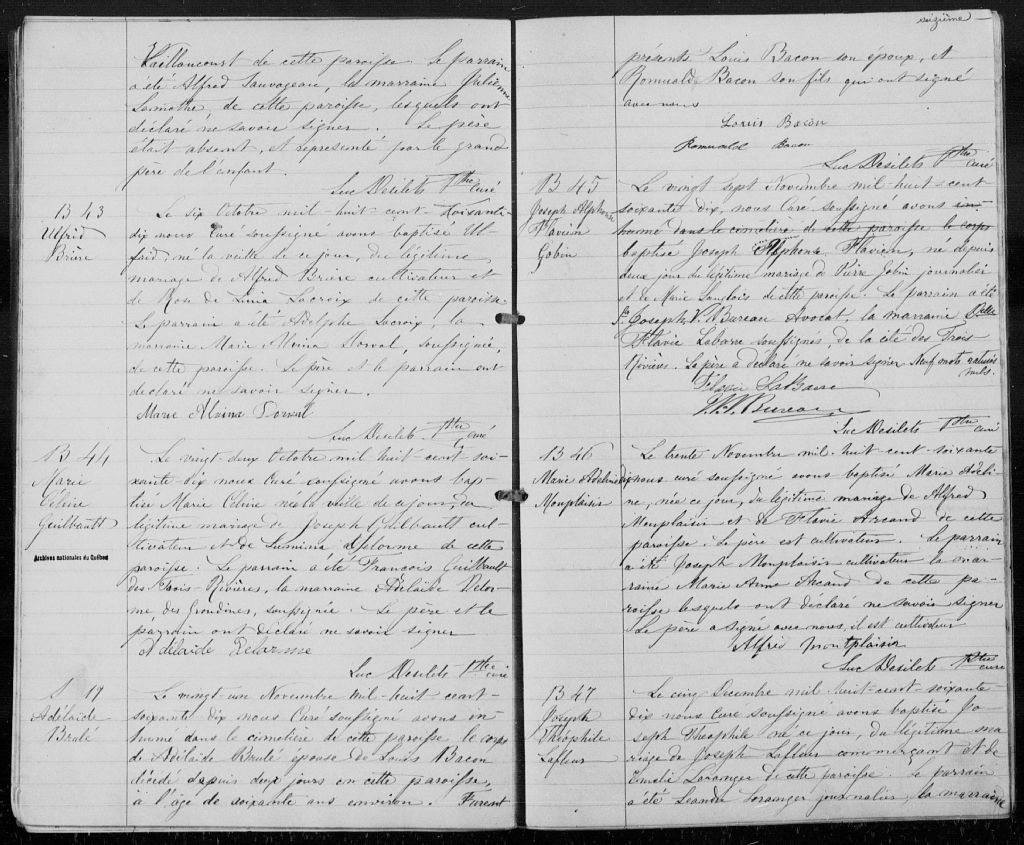 Vaillancourt de cette paroisse Le parrain
a été Alfred Sauvageau, la marraine Julienne
Lamothe, de cette paroisse, lesquels ont
déclaré ne savoir signer. Le père
était absent, et représenté par le grand
père de l'enfant
Luc Desilets Ptre curé
B 43
Alfred
Brière
Le six Octobre mil-huit-cent-soixante-
dix nous Curé soussigné avons baptisé Al-
fred, né la veille de ce jour, du légitime
mariage de Alfred Brière cultivateur et
de Rose de Lima Lacroix de cette paroisse
Le parrain a été Adelphe Lacroix, la
marraine Marie Alvina Dorval, soussignée,
de cette paroisse. Le père et le parrain ont
déclaré ne savoir signer.
Marie Alvina Dorval
Luc Desilets Ptre Curé
B 44
Marie
Céline
Guilbault
Archives nationales du Québec
Le vingt deux Octobre mil huit cent soi-
xante dix nous Curé soussigné avons bap-
tisé Marie Celine née la veille de ce jour, du
légitime mariage de Joseph Guilbault cul-
tivateur et de Lumina Delorme de cette
paroisse. Le parrain a été François Guilbault
des Trois-Rivières, la marraine Adélaide Delor-
me des Grondines, soussignée. Le père et le
parrain ont déclaré ne savoir signer
Adelaide Delorme
Luc Desilets Ptre curé
S 17
Adélaide
Brulé
Le vingt-un Novembre mil-huit-cent-
soixante dix nous Curé soussigné avons in
humé dans le cimetière de cette paroisse le corps
de Adélaide Brulé épouse de Louis Bacon
décédé depuis deux jours en cette paroisse,
à l'âge de soixante ans environ. Furent
seizième
présents Louis Bacon son époux, et
Romuald Bacon son fils qui ont signé
avec nous
Louis Bacon
Romuald Bacon
Luc Desilets Ptre curé
B 45
Joseph Alphonse
Flavien
Gobin
Le vingt sept Novembre mil-huit-cent
soixante dix, nous Curé soussigné avons in-
humé dans le cimetière de cette paroisse le corps
baptisé Joseph Alphonse Flavien, né depuis
deux jours du légitime mariage de Pierre Gobin journalier
et de Marie Langlois de cette paroisse. Le parrain a été
Joseph N. Bureau Avocat, la marraine Delle
Flavie Labarre soussignés, de la cité des Trois
Rivières. Le père a déclaré ne savoir signer. Neuf mots raturés
nuls.
Flavie LaBarre
J. N. Bureau
Luc Desilets Ptre curé
B 46
Marie Adeline
Monplaisir
Le trente Novembre mil-huit-cent-soixante
dix nous curé soussigné avons baptisé Marie Adeli-
ne, née ce jour, du légitime mariage de Alfred
Monplaisir et de Flavie Arcand de cette
paroisse. Le père est cultivateur. Le parrain
a été Joseph Monplaisir cultivateur la mar-
raine Marie Anne Arcand de cette pa-
roisse lesquels ont déclaré ne savoir signer
Le père a signé avec nous, il est cultivateur
Alfred montplaisir
Luc Desilets Ptre curé
B 47
Joseph
Théophile
Lafleur
Le cinq Decembre mil huit-cent-soixante
dix nous Curé soussigné avons baptisé Jo-
seph Théophile né ce jour, du légitime ma
riage de Joseph Lafleur commerçant et de
Loranger de cette paroisse. Le parrain
a été Léandre Loranger journalier, la marraine